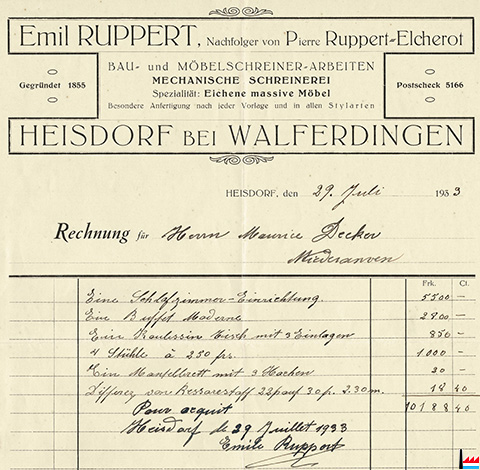 Emil RUPPERT, Nachfolger von Pierre Ruppert-Elcherot
BAU- und MÖBELSCHREINER-ARBEITEN
MECHANISCHE SCHREINEREI
Spezialität: Eichene massive Möbel
Besondere Anfertigung nach jeder Vorlage und in allen Stylarten
Gegründet 1855
Postscheck 5166
HEISDORF BEI WALFERDINGEN
HEISDORF, den 29. Juli 1933
Rechnung für Herrn Maurice Decker
Niederanven
Frk. Ct.
Eine Schlafzimmer-Einrichtung. 5500 –
Ein Buffet Moderne 2800 –
Ein Tisch mit 3 Einlagen 850 –
4 Stühle à 250 frs. 1000 –
Ein mit 3 Hacken 20 –
Differez von 22p auf 30p. 2.30m. 18 40
Pour acquit 10188 40
Heisdorf le 29 Juillet 1933
Emile Ruppert